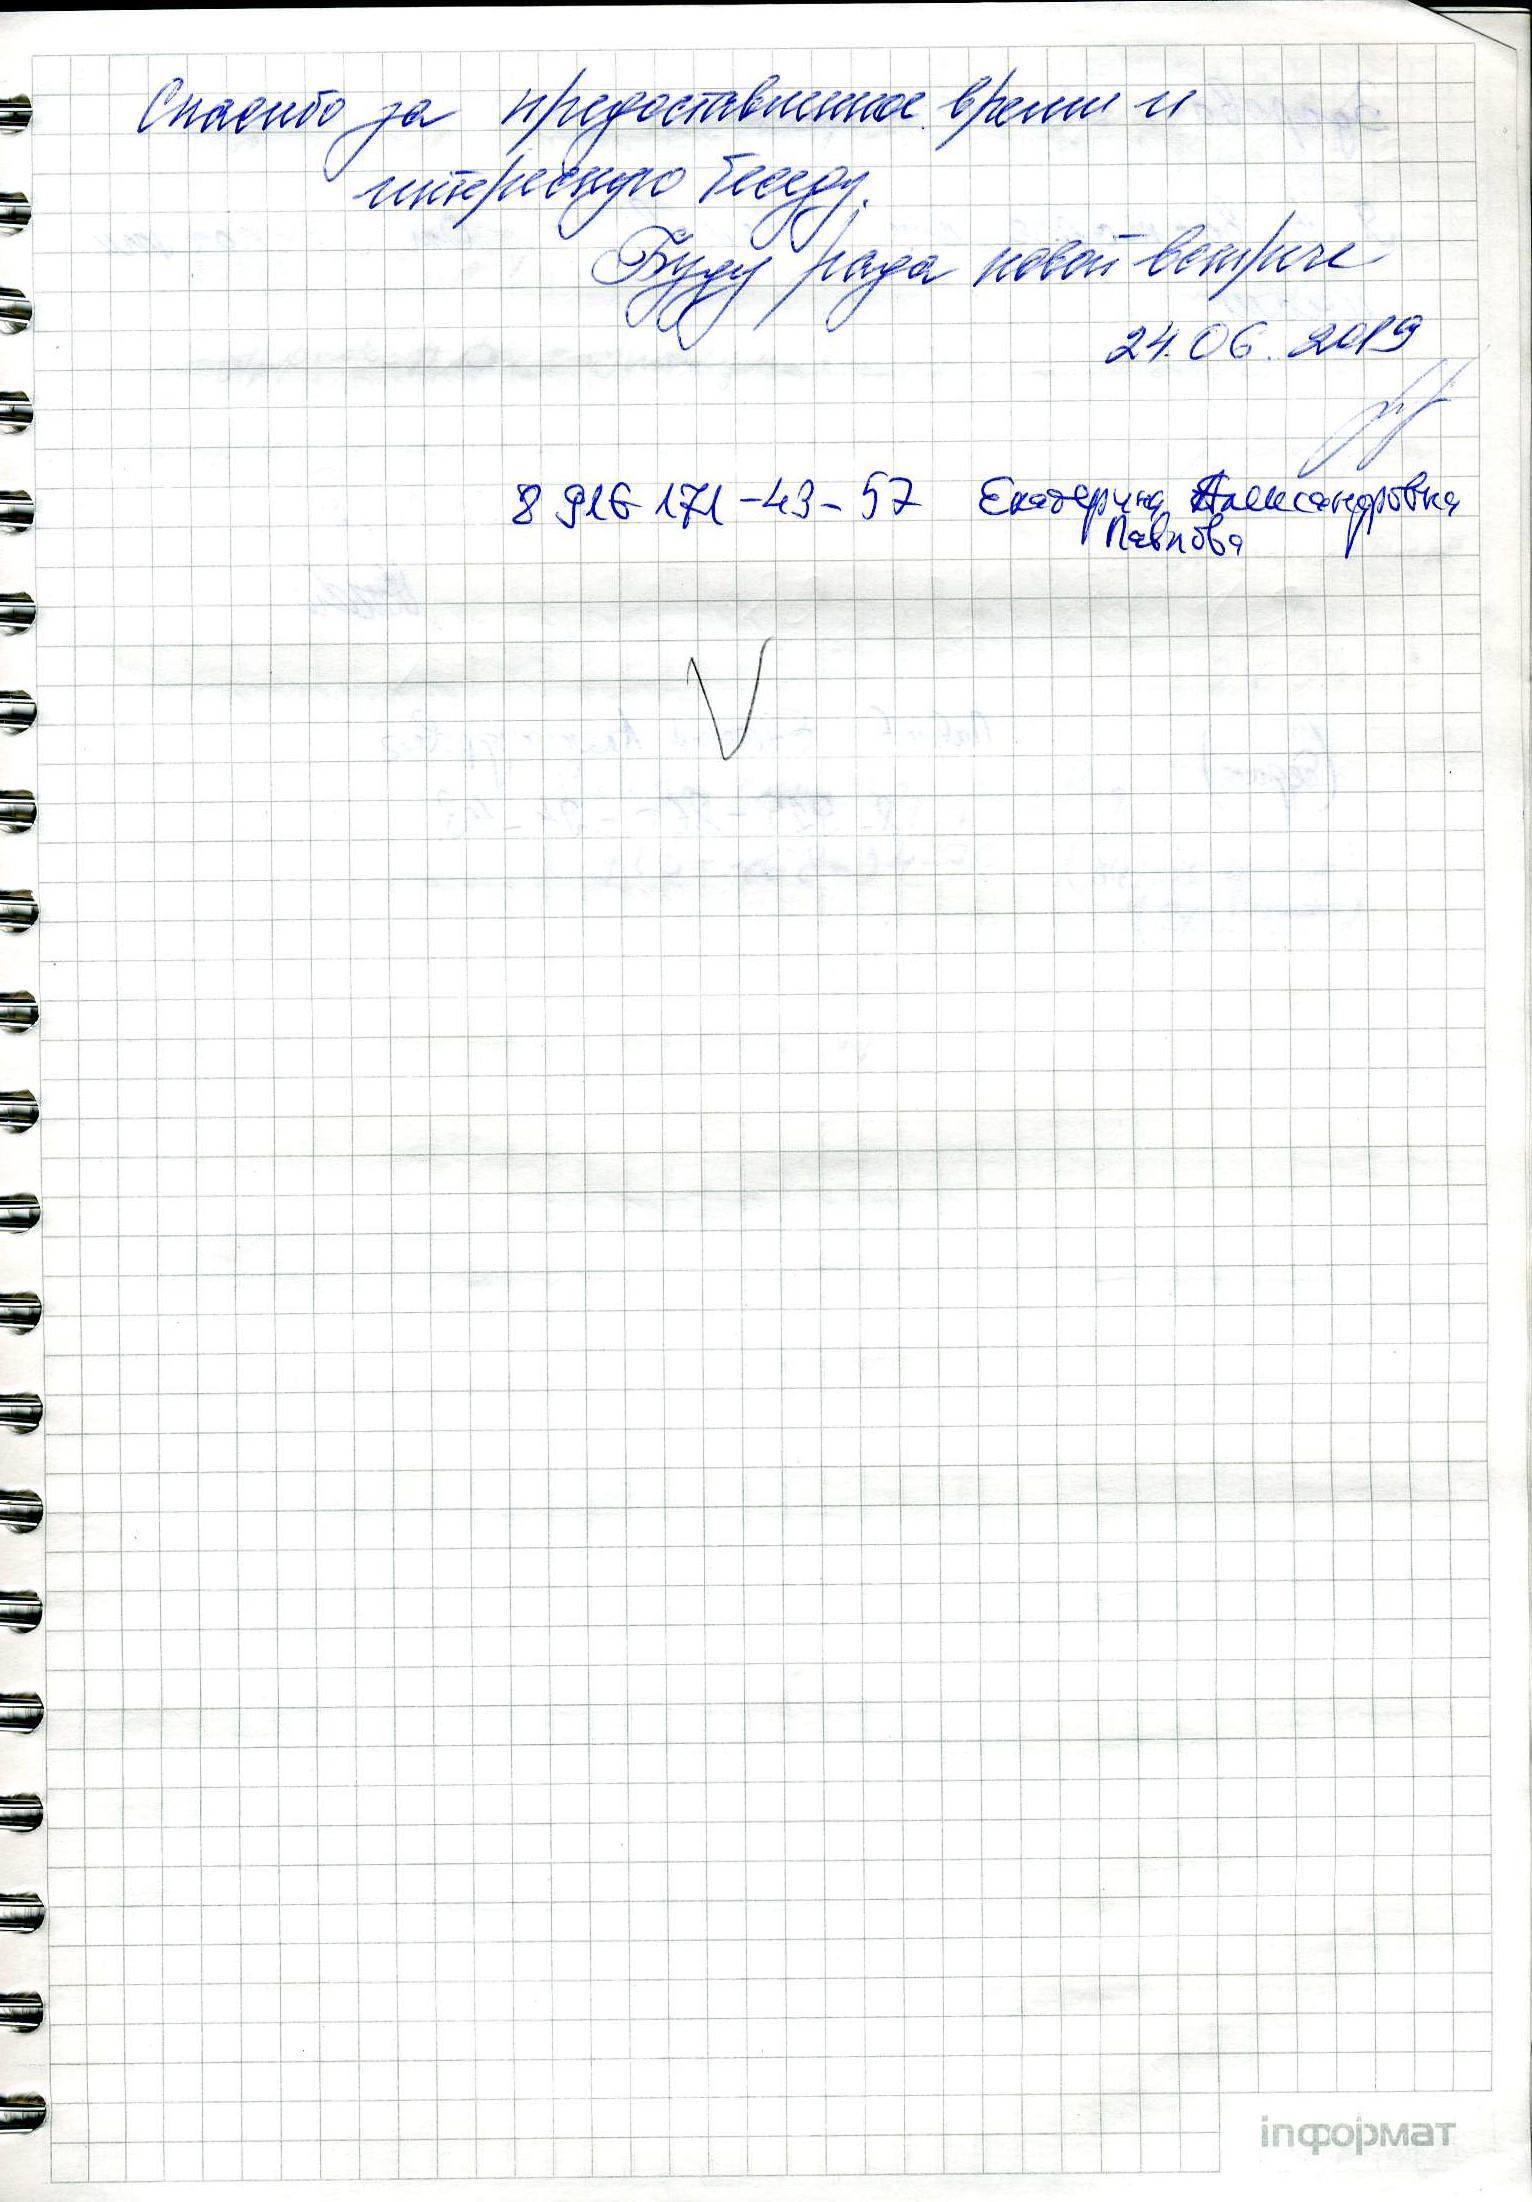 Спасибо за предоставленное время и
интересную беседу.
Буду рада новой встрече
24.06.2019
8 916 171-43-57 Екатерина Александровна
Павлова
inформат